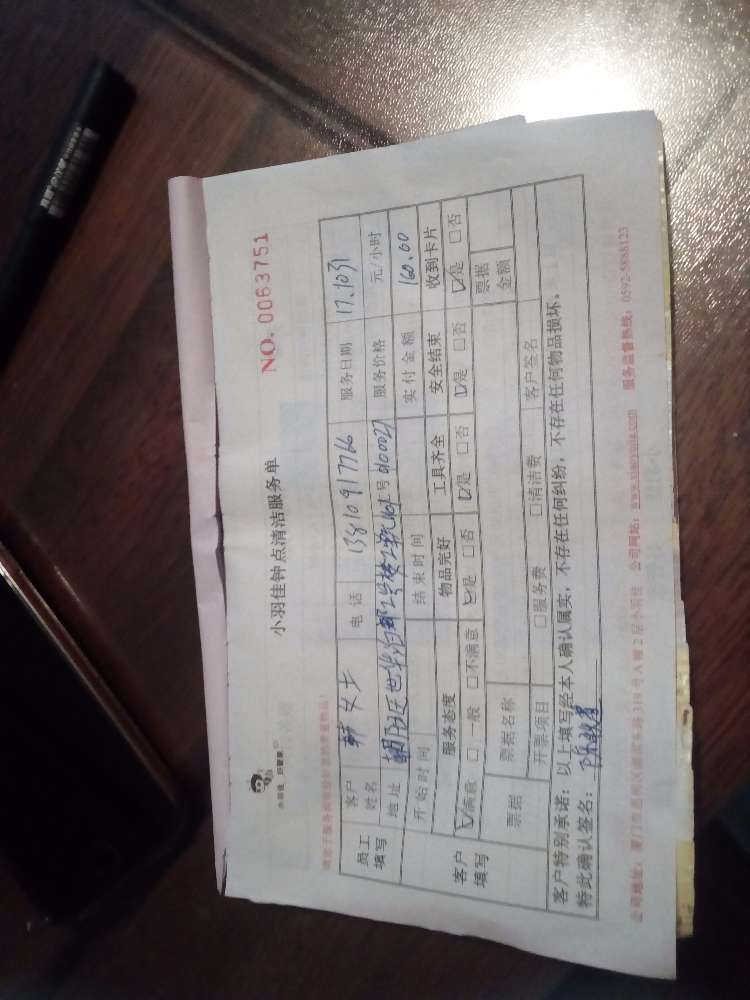 小羽佳 好管家
小羽佳钟点清洁服务单
NO. 0063751
员工填写
客户姓名 韩女士 电话 13810917766 服务日期 17.1031
地址 工号 服务价格 元/小时
开始时间 结束时间 实付金额 160.00
客户填写
服务态度 物品完好 工具齐全 安全结束 收到卡片
☑满意 □一般 □不满意 ☑是 □否 ☑是 □否 ☑是 □否 ☑是 □否
票据 票据名称 票据金额
开票项目 □服务费 □清洁费 客户签名
客户特别承诺：以上填写经本人确认属实，不存在任何纠纷，不存在任何物品损坏。
特此确认签名：
公司地址：厦门市思明区 号A幢2层小羽佳 公司网站： 服务监督热线：0592-5888123